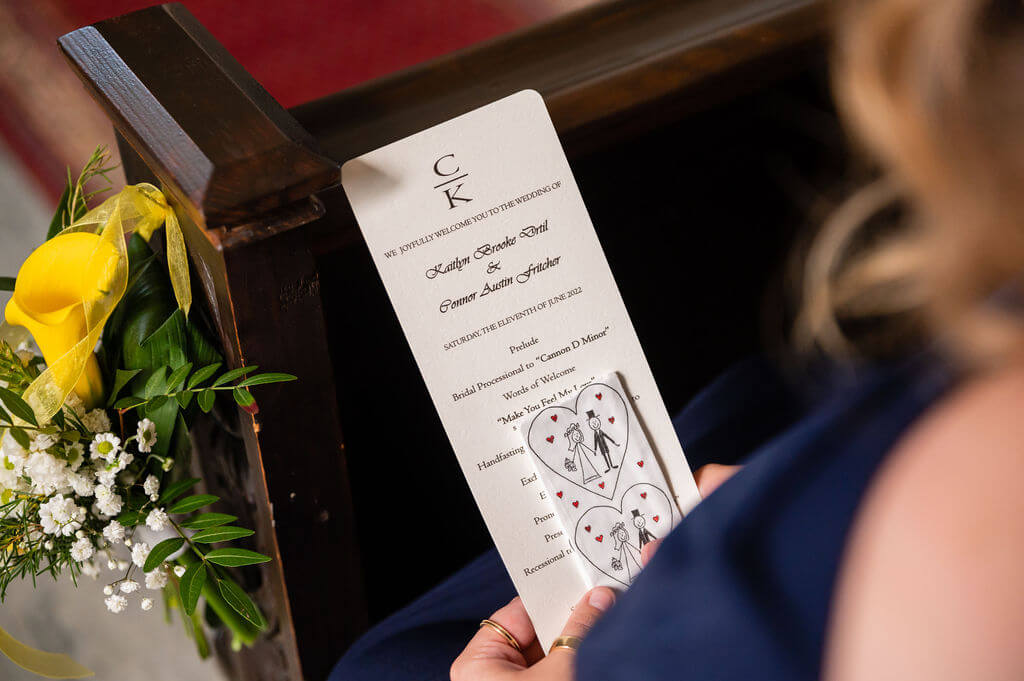 C
K
WE JOYFULLY WELCOME YOU TO THE WEDDING OF
Kaitlyn Brooke Drtil
&
Connor Austin Fritcher
SATURDAY, THE ELEVENTH OF JUNE 2022
Prelude
Bridal Processional to "Cannon D Minor"
Words of Welcome
"Make You Feel My Love"
s
Handfasting
Recessional to